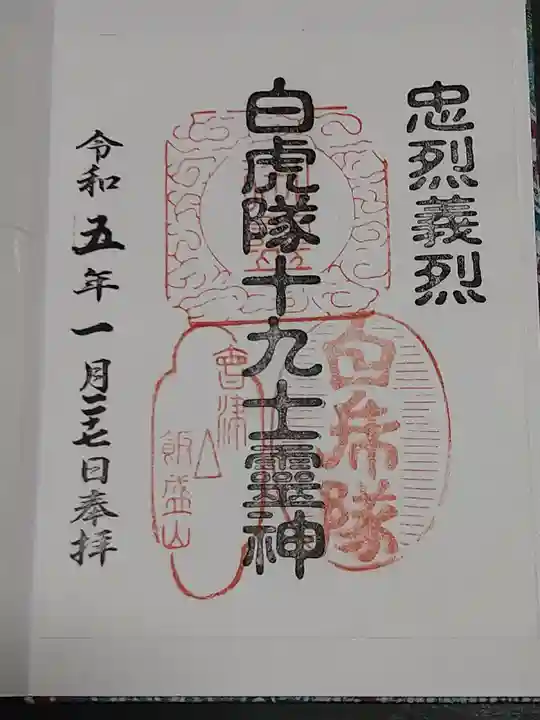 忠烈義烈
白虎隊十九士靈神
白虎隊
會津
飯盛山
令和五年一月二七日奉拝